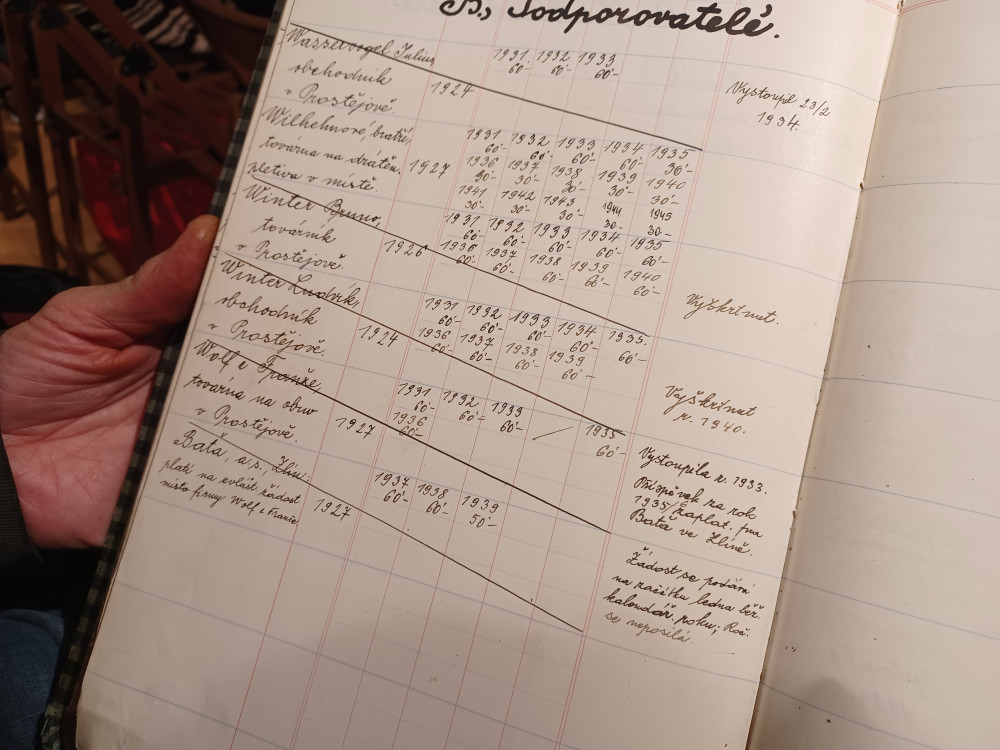 B, Podporovatelé.
Wasservogel Julius,
obchodník
v Prostějově.
1924
1931 1932 1933
60'- 60'- 60'-
Vystoupil 23/2
1934.
Wilhelmové, bratří,
továrna na drátěn.
pletiva v místě.
1927
1931 1932 1933 1934 1935
60'- 60'- 60'- 60'- 30'-
1936 1937 1938 1939 1940
30'- 30'- 30'- 30'- 30'-
1941 1942 1943 1944 1945
30'- 30'- 30'- 30.- 30.-
Winter Bruno,
továrník
v Prostějově.
1926
1931 1932 1933 1934 1935
60'- 60'- 60'- 60'- 60'-
1936 1937 1938 1939 1940
60'- 60'- 60'- 60'- 60'-
Vyškrtnut.
Winter Ludvík,
obchodník
v Prostějově.
1924
1931 1932 1933 1934 1935.
60'- 60'- 60'- 60'- 60'-
1936 1937 1938 1939
60'- 60'- 60'- 60'-
Vyškrtnut
r. 1940.
Wolf e Franke,
továrna na obuv
v Prostějově.
1927
1931 1932 1933 1935
60'- 60'- 60'- 60'-
1936
60'-
Vystoupila r. 1933.
Příspěvek na rok
1935 zaplat. fma
Baťa ve Zlíně.
Baťa, a.s., Zlín,
platí na zvlášt žádost
místo firmy Wolf e Franke
1927
1937 1938 1939
60'- 60'- 50'-
Žádost se podává
na začátku ledna běž.
kalendář. roku; Roč.
se neposílá.